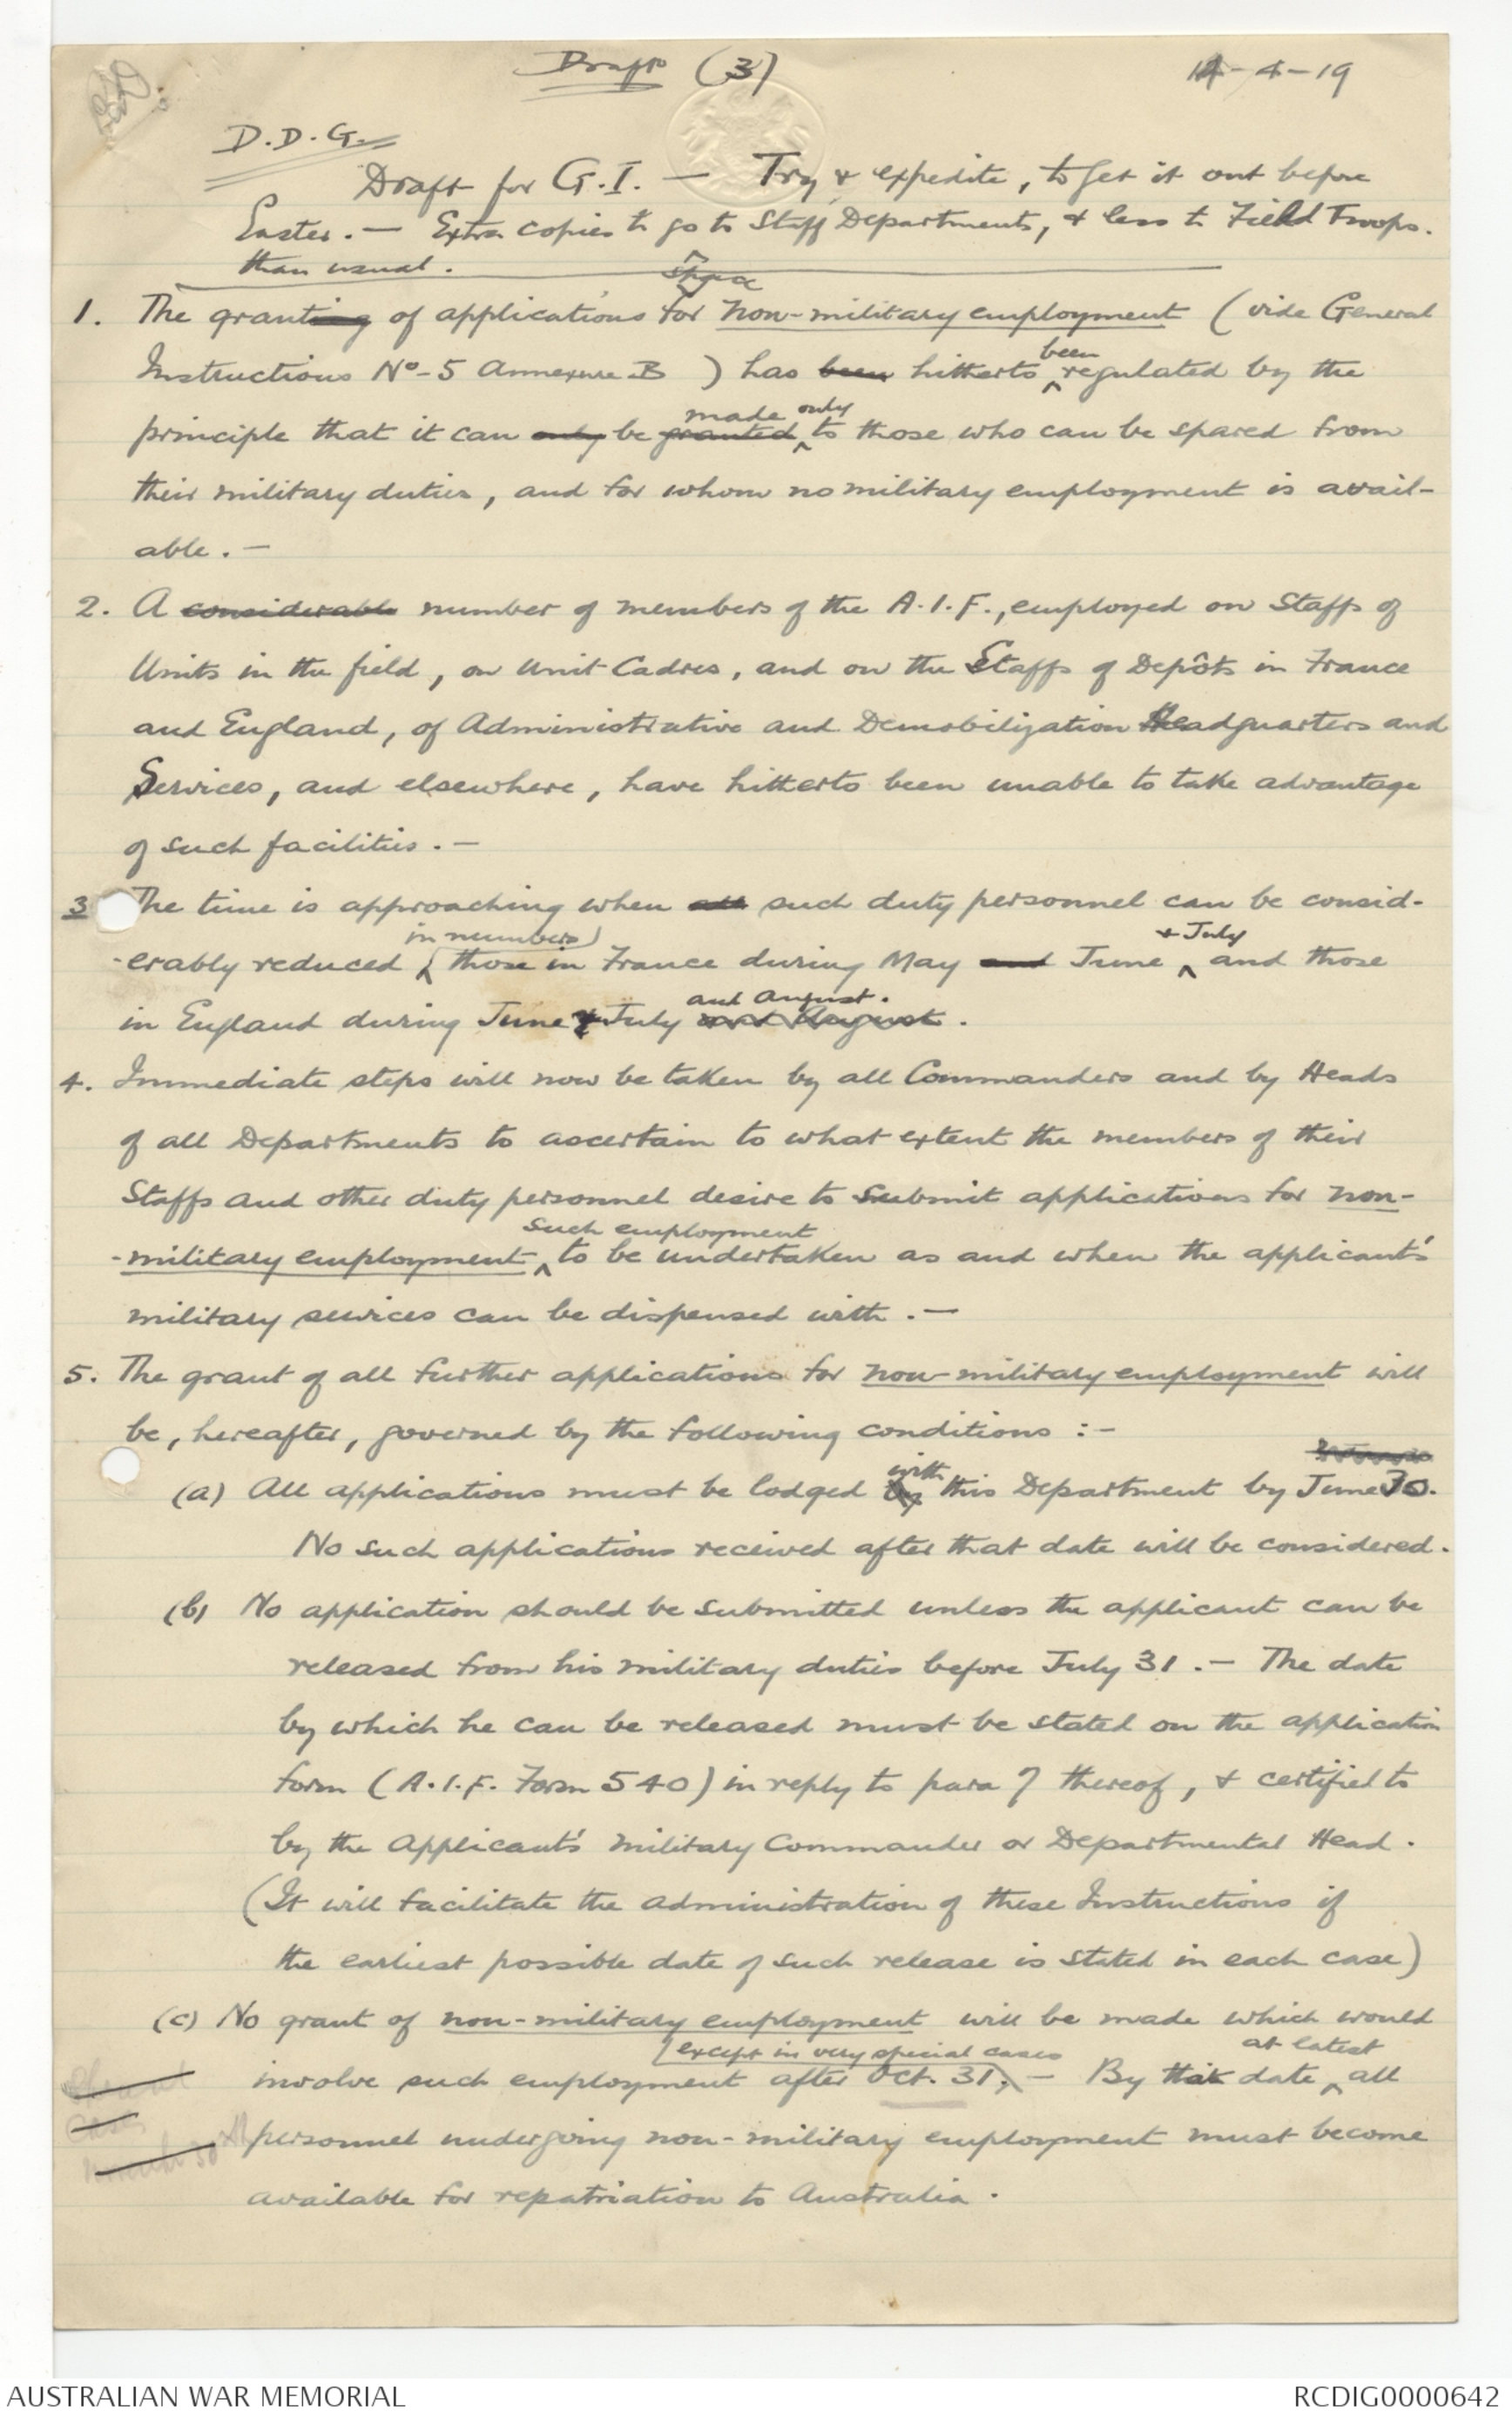 Draft (3)
14-4-19
D.D.G.
Draft for G.I. — Try & expedite, to get it out before
Easter. — Extra copies to go to Staff Departments, & less to Field Troops.
than usual.
1. The granting of applications for non-military employment (vide General
been
Instructions No-5 Annexure B ) has been hitherto regulated by the
made only
principle that it can only be granted to those who can be spared from
their military duties, and for whom no military employment is avail-
able. —
2. A considerable number of members of the A.I.F., employed on Staffs of
Units in the field, on Unit Cadres, and on the Staffs of Depôts in France
and England, of Administrative and Demobilization Headquarters and
Services, and elsewhere, have hitherto been unable to take advantage
of such facilities. —
3 The time is approaching when all such duty personnel can be consid-
in numbers & July
-erably reduced those in France during May and June and those
and August.
in England during June & July and August.
4. Immediate steps will now be taken by all Commanders and by Heads
of all Departments to ascertain to what extent the members of their
Staffs and other duty personnel desire to submit applications for non-
such employment
-military employment to be undertaken as and when the applicants'
military services can be dispensed with. —
5. The grant of all further applications for non-military employment will
be, hereafter, governed by the following conditions :-
with
(a) All applications must be lodged by this Department by June 30.
No such applications received after that date will be considered.
(b) No application should be submitted unless the applicant can be
released from his military duties before July 31. — The date
by which he can be released must be stated on the application
form (A.I.F. Form 540) in reply to para 7 thereof, & certified to
by the Applicant's Military Commander or Departmental Head.
(It will facilitate the administration of these Instructions if
the earliest possible date of such release is stated in each case)
(c) No grant of non-military employment will be made which would
except in very special cases at latest
involve such employment after Oct. 31. — By that date all
personnel undergoing non-military employment must become
available for repatriation to Australia.
AUSTRALIAN WAR MEMORIAL
RCDIG0000642